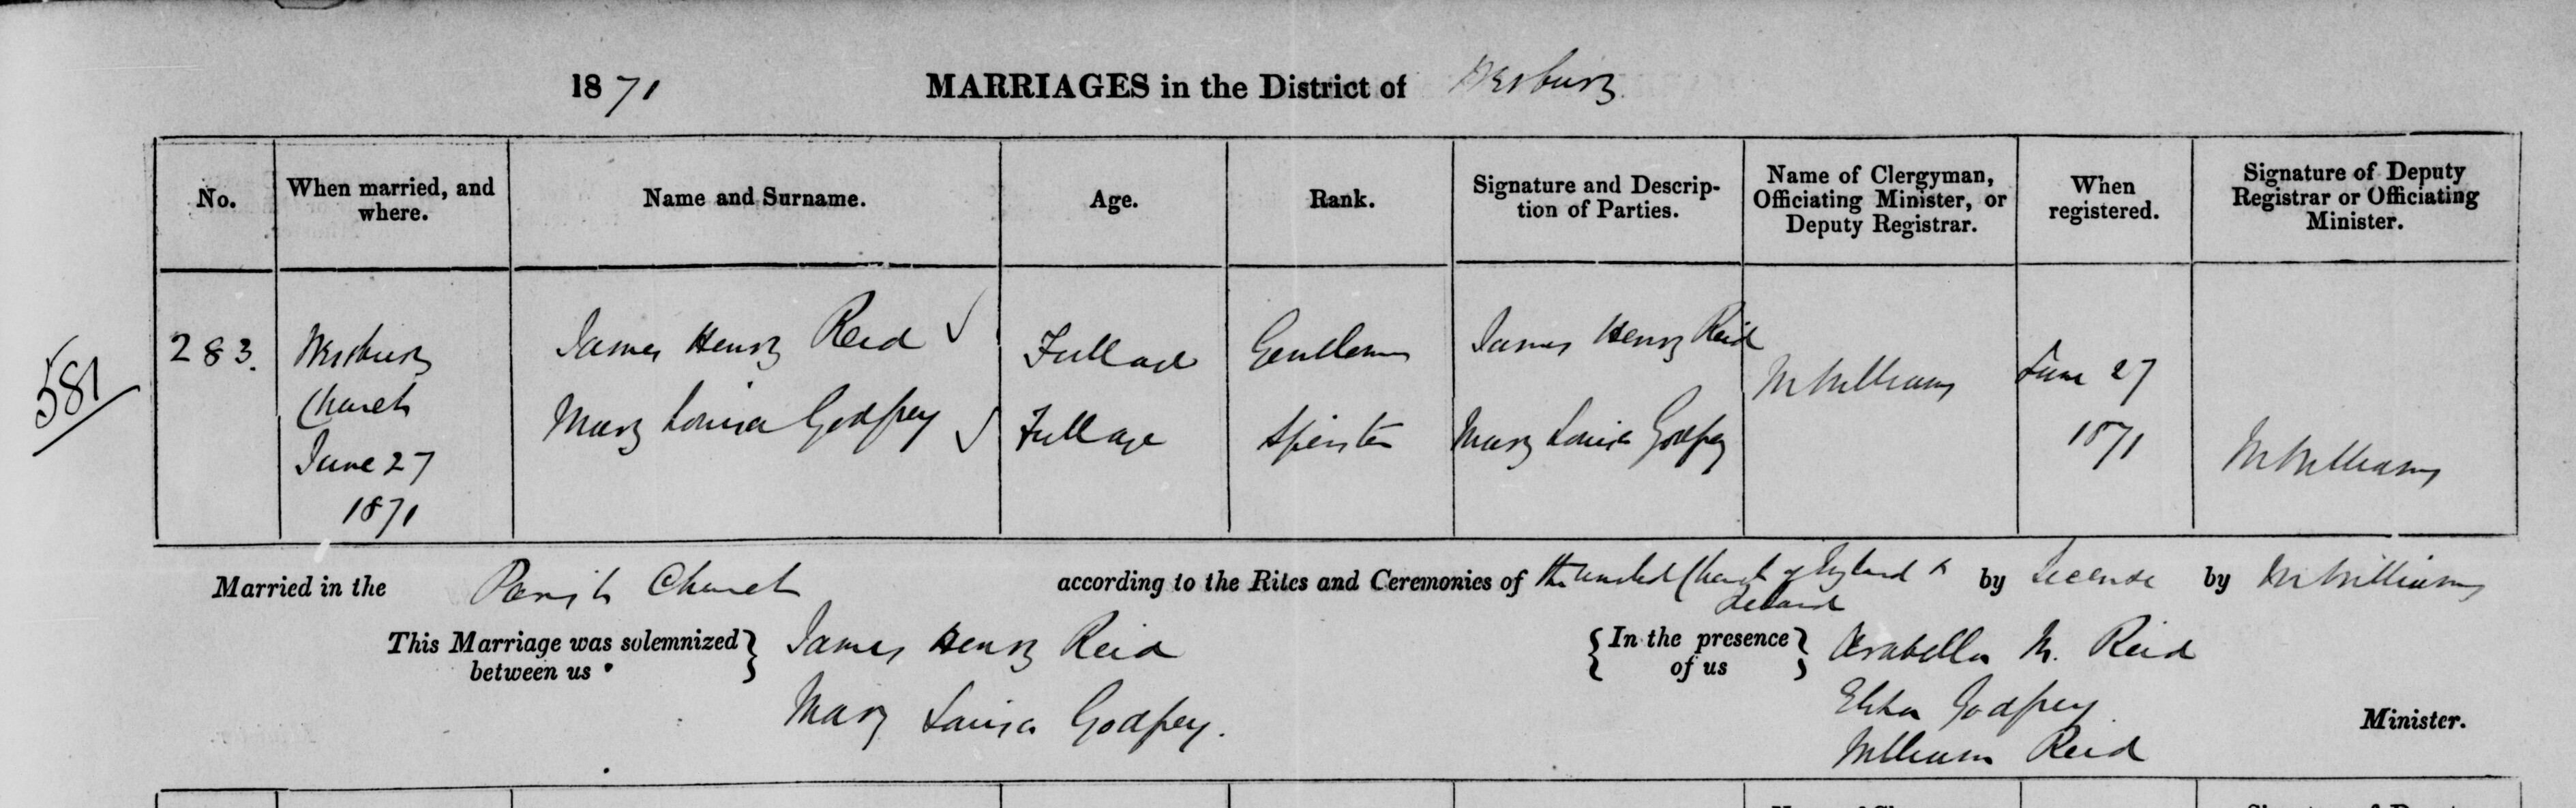 1871 MARRIAGES in the District of Westbury
No. When married, and where. Name and Surname. Age. Rank. Signature and Description of Parties. Name of Clergyman, Officiating Minister, or Deputy Registrar. When registered. Signature of Deputy Registrar or Officiating Minister.
581
283. Westbury Church June 27 1871
James Henry Reid Full age Gentleman James Henry Reid
Mary Louisa Godfrey Full age Spinster Mary Louisa Godfrey
M Williams June 27 1871 M Williams
Married in the Parish Church according to the Rites and Ceremonies of the United Church of England & Ireland by License by M Williams
This Marriage was solemnized between us James Henry Reid
Mary Louisa Godfrey.
In the presence of us Arabella M. Reid
Godfrey
William Reid
Minister.